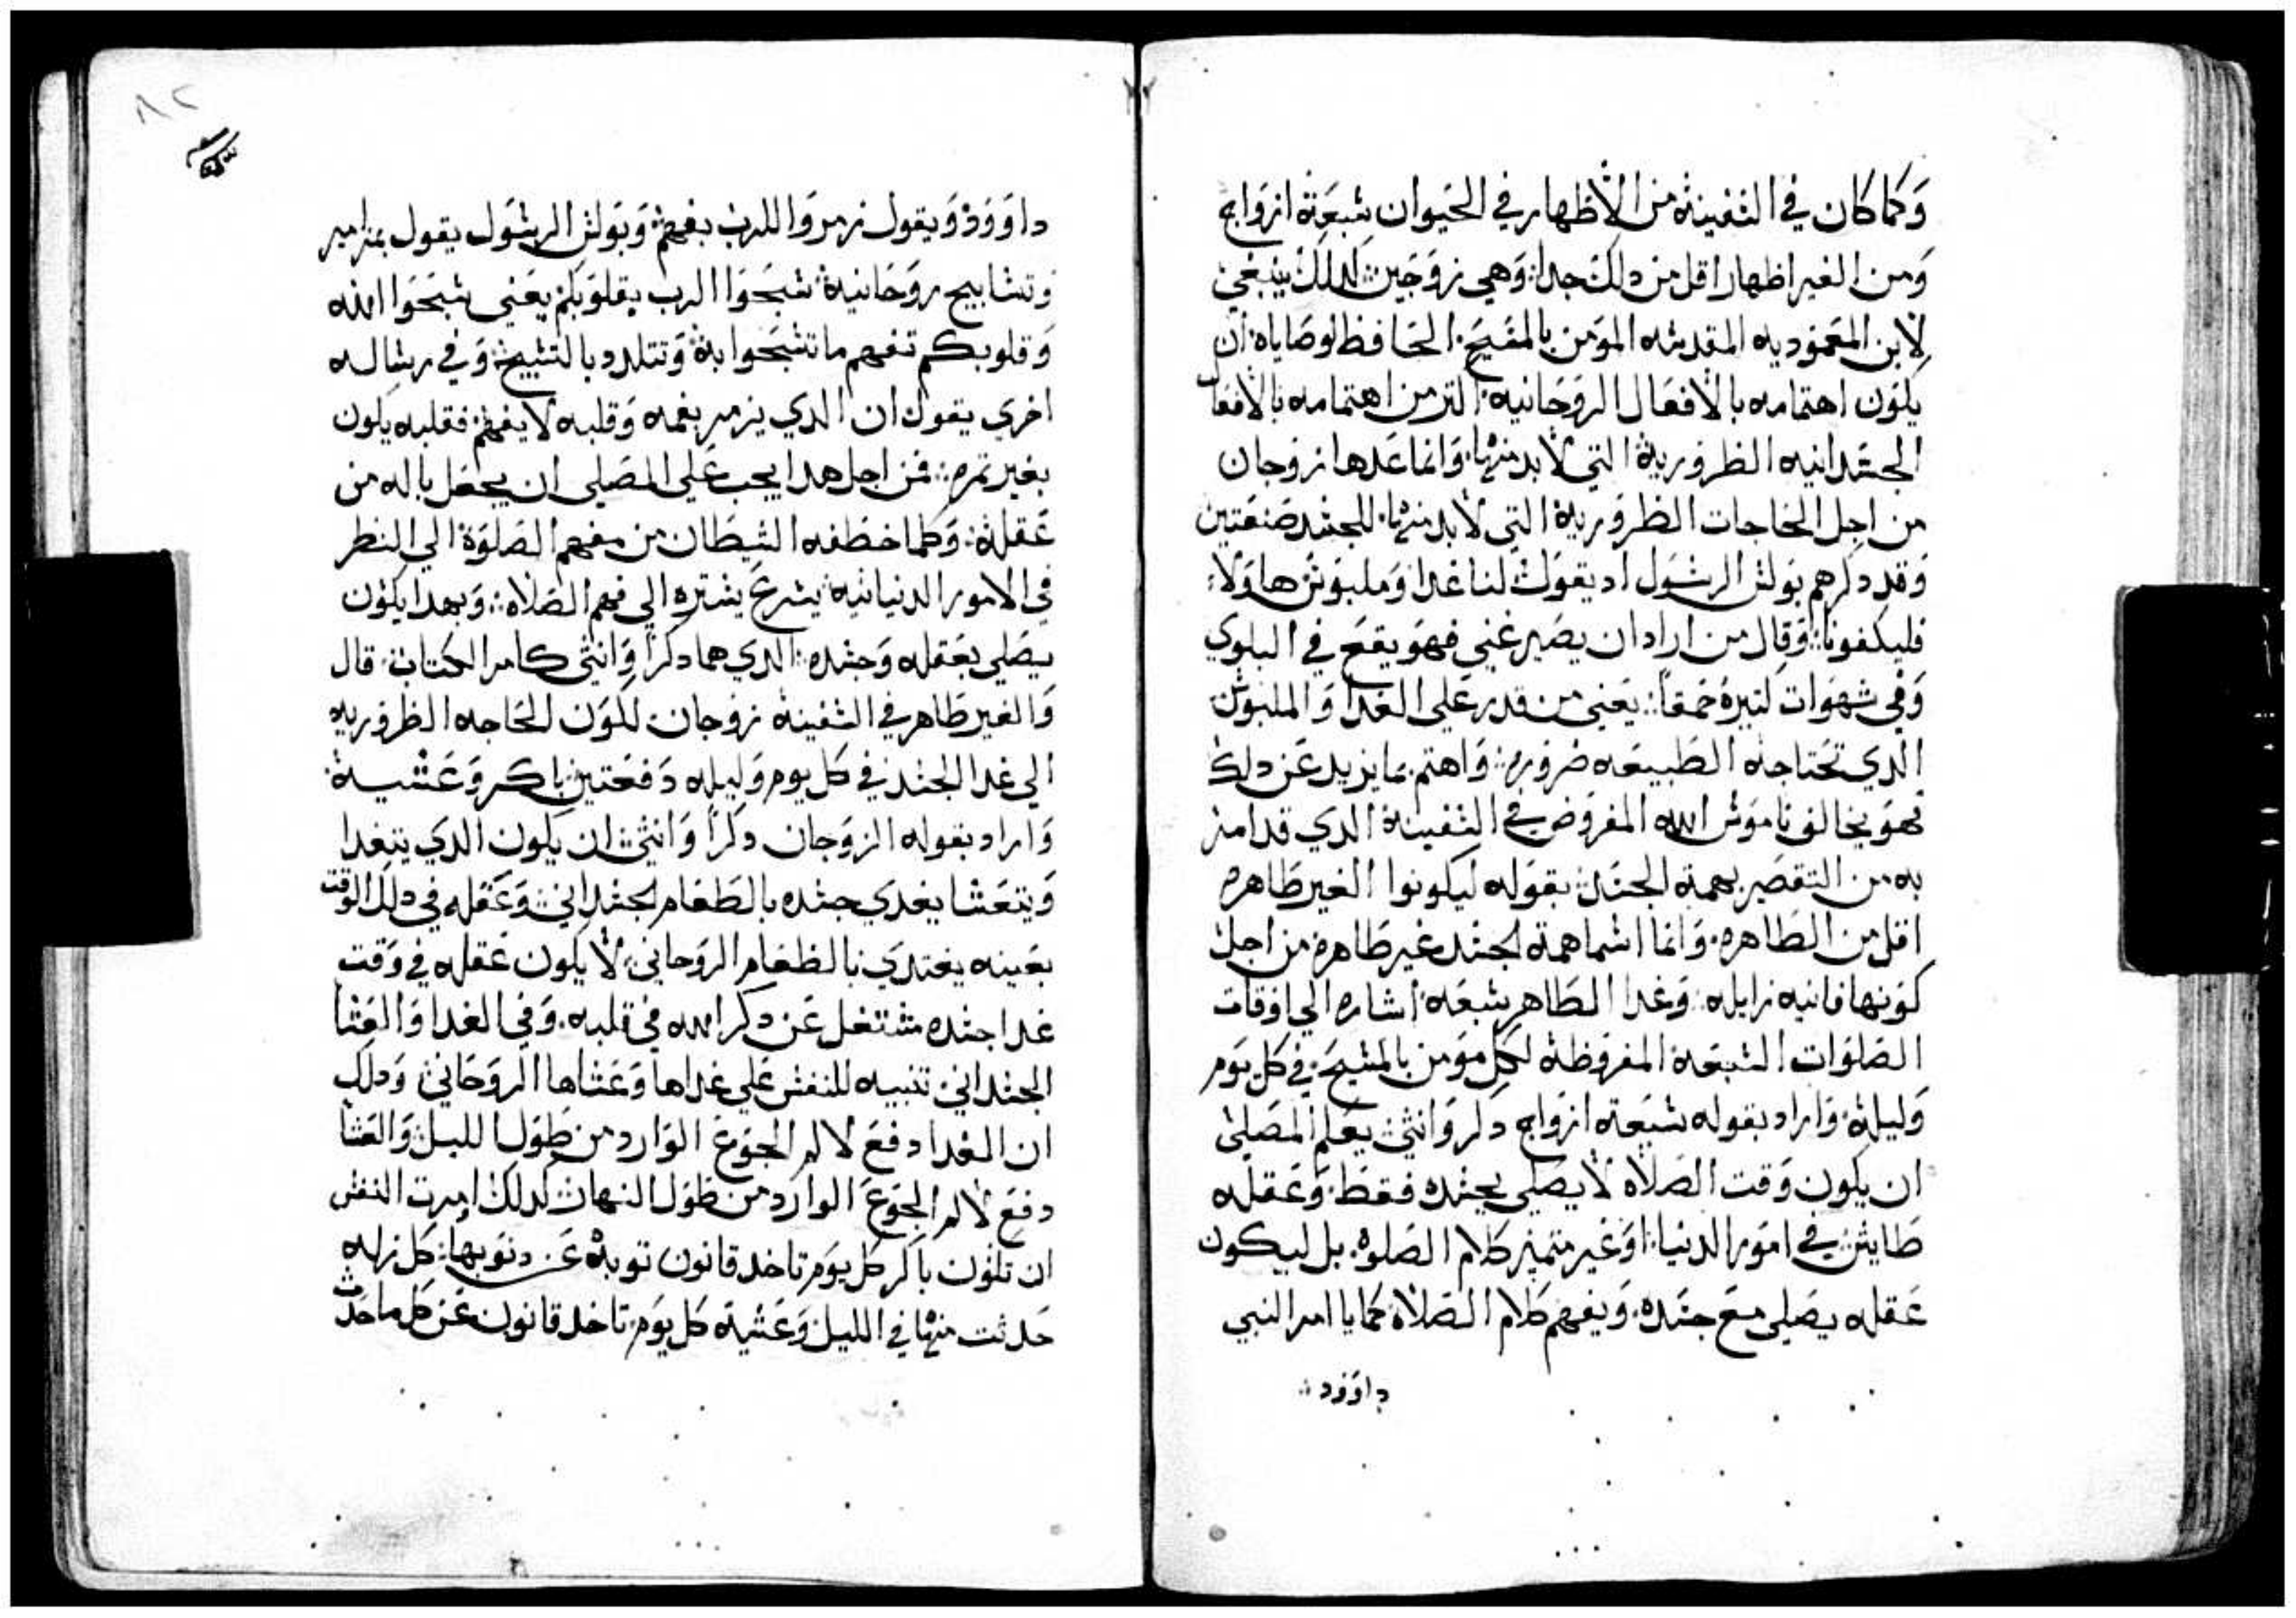 وَكما كان في السَفينة من الأظهار في الحَيوان سَبعَة ازوَاج
وَمن الغير اظهار اقل من دالك جدا. وَهي زوَجين. لدلك ينبغي
لابن المعَموديه المقدسه المَومن بالمسَيح. الحَافظ لوصَاياه ان
يكَون اهتمامه بالافعَال الروَحَانيه. اكتر من اهتمامه بالافعَال
الجسَدانيه الظروريَة التي لابد منها. وَانما عَدها زوَجان
من اجل الحَاجات الظروَرية التي لابد منها. للجسَد صَنفَتين
وَقد دكرهم بَولس الرسَول اد يقوَل لنا غدا وَملبَوس هاوَلاء
فليكَفونا. وَقال من اراد ان يصَير غني فهوَ يقعَ في البلوي
وَفي شهوَات كتيرة حمَقا. يعَني من قدر عَلي الغدا وَالملبَوس
الدي تحَتاجه الطبيعَه ضروره. وَاهتم بما يزيد عَن دلك
فهوَ يخالف ناموَس الله المفروَض في السَفينة الدي قد امر
به من التقصَير بهمة الجسَد. بقوَله ليكونوا الغير طَاهره
اقل من الطَاهره. وَانما اسَما همة الجسَد غير طَاهره من اجل
كوَنها فانيه زايله. وَغدا الطَاهر سَبعَه اشاره الي اوَقات
الصَلوَات السَبعَة المفروَظة لكل موَمن بالمسَيح. في كل يوَم
وَليلة. وَاراد بقوله سَبعَة ازوَاج دكر وَانثي. يعَلم المصَلي
ان يكوَن وَقت الصَلاة لا يصَلي بجسَده فقط. وَعَقله
طَايش في اموَر الدنيا. اوَ غير متميز كلام الصَلوه. بل ليكون
عَقله يصَلي معَ جسَده. وَيفهم كلام الصَلاة. كما يا امر النبي
داوَوَد

٨٢
داوَوَد وَيقول زمروَا للرب بفهم. وَبَولس الرسَول يقول بمزامير
وَتسَابيح روَحَانية. سَبحَوَا الرب بقلوَبكم يعَني سَبحَوَا الله
وَقلوبكم تفهم ما تسَبحَوا به. وَتتلدد بالتسَبيح. وَفي رسَاله
اخري يقول ان الدي يزمر بفمه وَقلبه لا يفهم. فقلبه يكون
بغير تمره. فمن اجل هدا يجب عَلي المصَلي ان يجعَل باله من
عَقله. وَكلما خطَفه الشيطَان من مفهم الصَلوَة الي النظر
في الامور الدنيانية. يسَرعَ يسَترده الي فهم الصَلاه. وَبهدا يكوَن
يصَلي بعَقله وَجسَده. الدي هما دكرًا وَانثي كامر الكتاب. قال
وَالغير طَاهر في السَفينة زوَجان. لكوَن الحَاجه الظروَريه
الي غدا الجسَد في كل يوم وَليله دَفعَتين باكر وَعَشية.
وَاراد بقوله الزوَجان دكرًا وَانثي. ان يكوَن الدي يتغدا
وَيتعَشا يغدي جسَده بالطَعَام الجسَداني. وَعَقله في دلك الوَقت
بعَينه يغتدي بالطَعَام الروَحاني. لا يكَون عَقله في وَقت
غدا جسَده مشتغل عَن دكر الله في قلبه. وَفي الغدا وَالعَشا
الجسَداني. تنبيه للنفس عَلي غداها وَعَشاها الروَحَاني. وَدلك
ان الغدا دفعَ لالم الجوَعَ الوَارد من طَوَل الليل. وَالعَشا
دفعَ لالم الجوَعَ الوارد من طَوَل النهار. لدلك امرت النفس
ان تكوَن باكر كل يوَم تاخد قانون توبة عَن دنوَبها. كل زله
حَدثت منها في الليل. وَعَشية كل يوَم. تاخد قانون عَن كل ما حَدَث